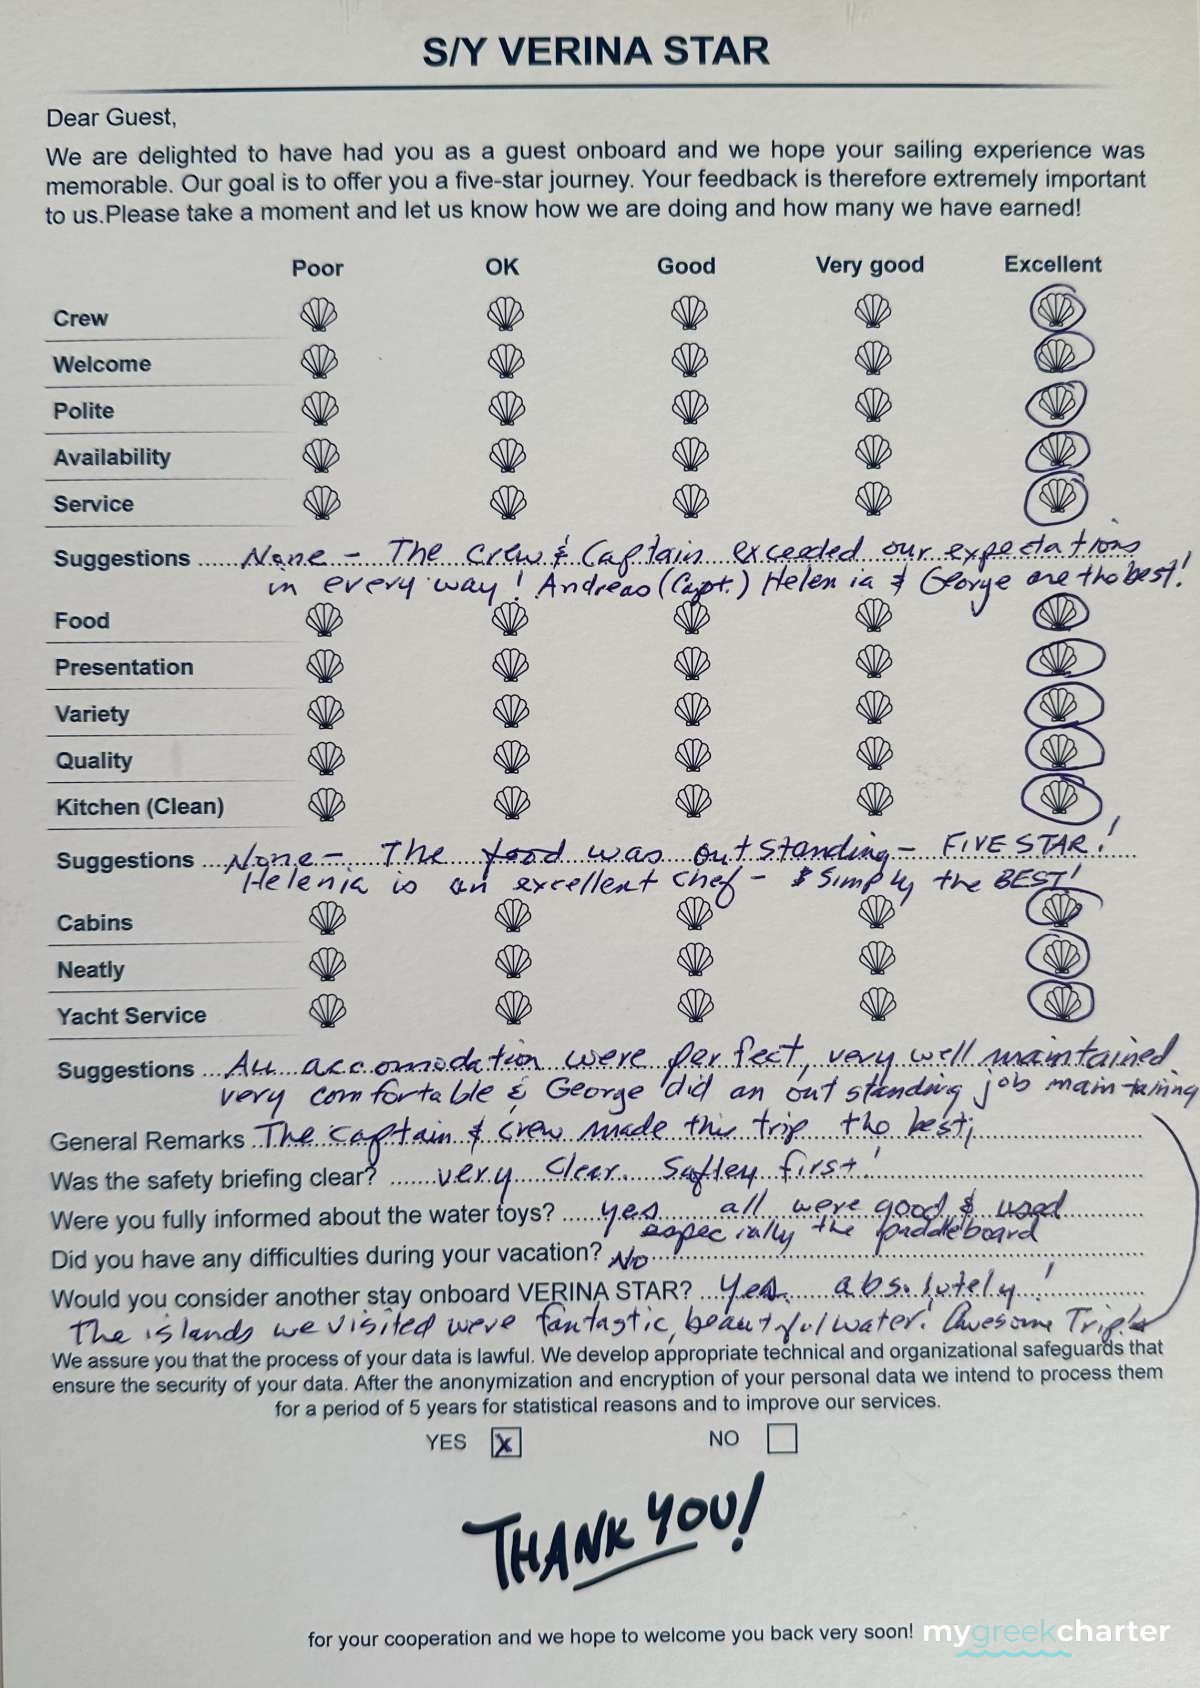 S/Y VERINA STAR
Dear Guest,
We are delighted to have had you as a guest onboard and we hope your sailing experience was
memorable. Our goal is to offer you a five-star journey. Your feedback is therefore extremely important
to us.Please take a moment and let us know how we are doing and how many we have earned!
Poor OK Good Very good Excellent
Crew
Welcome
Polite
Availability
Service
Suggestions ..... None - The crew & Captain exceeded our expectations
in every way! Andreas (Capt.) Helenia & George are the best!
Food
Presentation
Variety
Quality
Kitchen (Clean)
Suggestions ... None - The food was outstanding - FIVE STAR!
Helenia is an excellent chef - & simply the BEST!
Cabins
Neatly
Yacht Service
Suggestions ... All accomodation were perfect, very well maintained
very comfortable & George did an outstanding job maintaining
General Remarks .The captain & crew made this trip the best;
Was the safety briefing clear? ...... very clear. Saftey first!
Were you fully informed about the water toys? .... yes all were good & used
especially the paddleboard
Did you have any difficulties during your vacation? No
Would you consider another stay onboard VERINA STAR? ... Yes. absolutely!
The islands we visited were fantastic, beautiful water! Awesome Trip!
We assure you that the process of your data is lawful. We develop appropriate technical and organizational safeguards that
ensure the security of your data. After the anonymization and encryption of your personal data we intend to process them
for a period of 5 years for statistical reasons and to improve our services.
YES x NO
THANK YOU!
for your cooperation and we hope to welcome you back very soon!
mygreekcharter